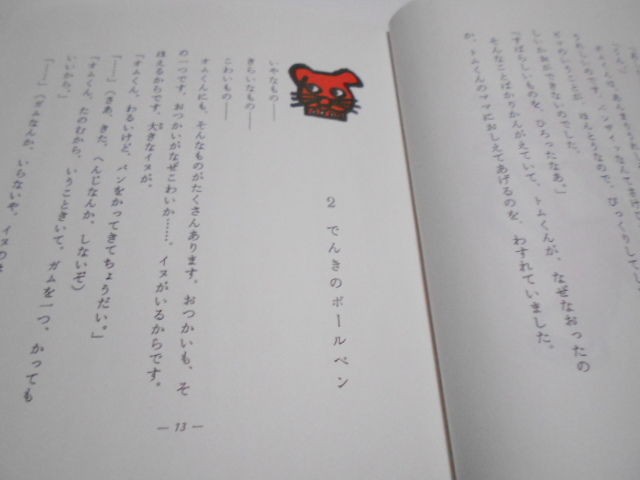 すばらしいものを、ひろったなあ。」
そんなことばかりかんがえていて、トムくんが、なぜなおったの
か、トムくんのママにおしえてあげるのを、わすれていました。
2 でんきのボールペン
いやなもの——
きらいなもの——
こわいもの——
オムくんにも、そんなものがたくさんあります。おつかいも、そ
の一つです。おつかいがなぜこわいか……。イヌがいるからです。
ほえるからです。大きなイヌが。
「オムくん、わるいけど、パンをかってきてちょうだい。」
「……」(さあ、きた。へんじなんか、しないぞ)
「オムくん、たのむから、いうこときいて。ガムを一つ、かっても
いいから。」
「……」(ガムなんか、いらないや。イヌの
— 13 —